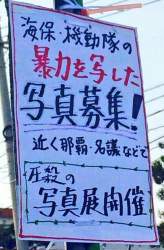 海保・機動隊の
暴力を写した
写真募集!
近く那覇・名護などで
圧殺の
写真展開催